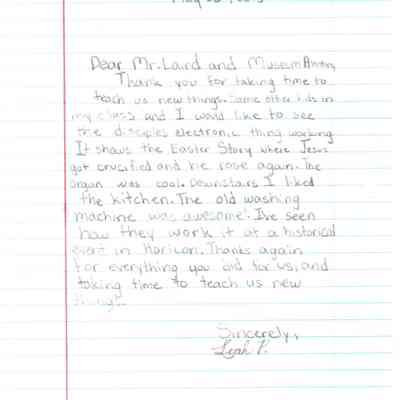 Dear Mr. Laird and Museum
Thank you for taking time to
teach us new things. Some other kids in
my class and I would like to see
the disciples electronic thing working
It shows the Easter Story where Jesus
got crucified and he rose again. The
organ was cool. Downstairs I liked
the kitchen. The old washing
machine was awesome! I've seen
how they work it at a historical
event in Horicon. Thanks again
for everything you did for us, and
taking time to teach us new
things.
Sincerely,
Leah P.